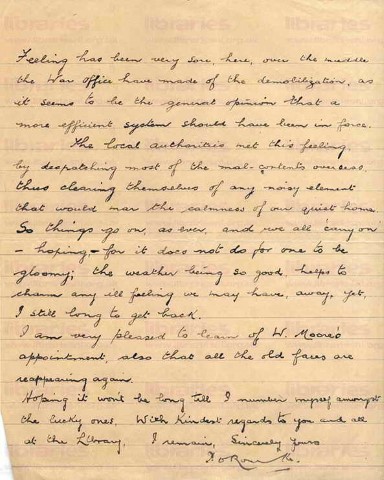 Feeling has been very sore, here, over the muddle
the War Office have made of the demobilization, as
it seems to be the general opinion that a
more efficient system should have been in force.
The local authorities met this feeling
by despatching most of the mal-contents overseas,
thus clearing themselves of any noisy element
that would mar the calmness of our quiet home.
So things go on, as ever, and we all 'carry on'
- hoping, - for it does not do for one to be
gloomy; the weather being so good, helps to
charm any ill feeling we may have, away, yet,
I still long to get back.
I am very pleased to learn of W. Moore's
appointment, also that all the old faces are
reappearing again.
Hoping it won't be long till I number myself amongst
the lucky ones. With kindest regards to you and all
at the Library, I remain, Sincerely Yours
libraries